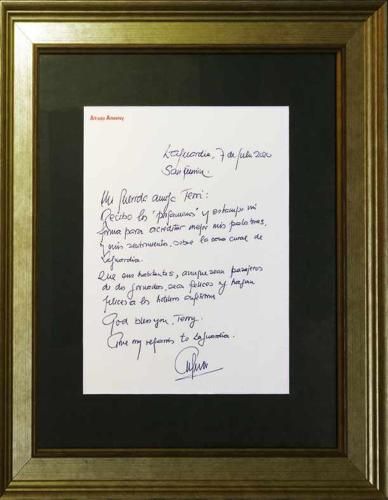 Alfredo Amestoy
Laguardia, 7 de Julio 2000
San Fermín
Mi querido amigo Terri:
Recibo los "pergaminos" y estampo mi
firma para acreditar mejor mis palabras,
y mis sentimientos, sobre la casa cural de
Laguardia.
Que sus habitantes, aunque sean pasajeros
de dos jornadas, sean felices y hagan
felices a los
God bless you, Terry.
Give my regards to Laguardia.